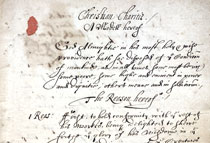 Christian Charitie
A Modell hereof
God Almightie in his most holy & wise
providence hath soe disposed of ye Condicion
of mankind, as in all times some must be rich
some poore, some high and eminent in power and
dignitie; others meane and in subieccion.
The Reason hereof
1 Reas: First, to hold conformity with ye rest of
his workes, being delighted to
glory of his wisdome in